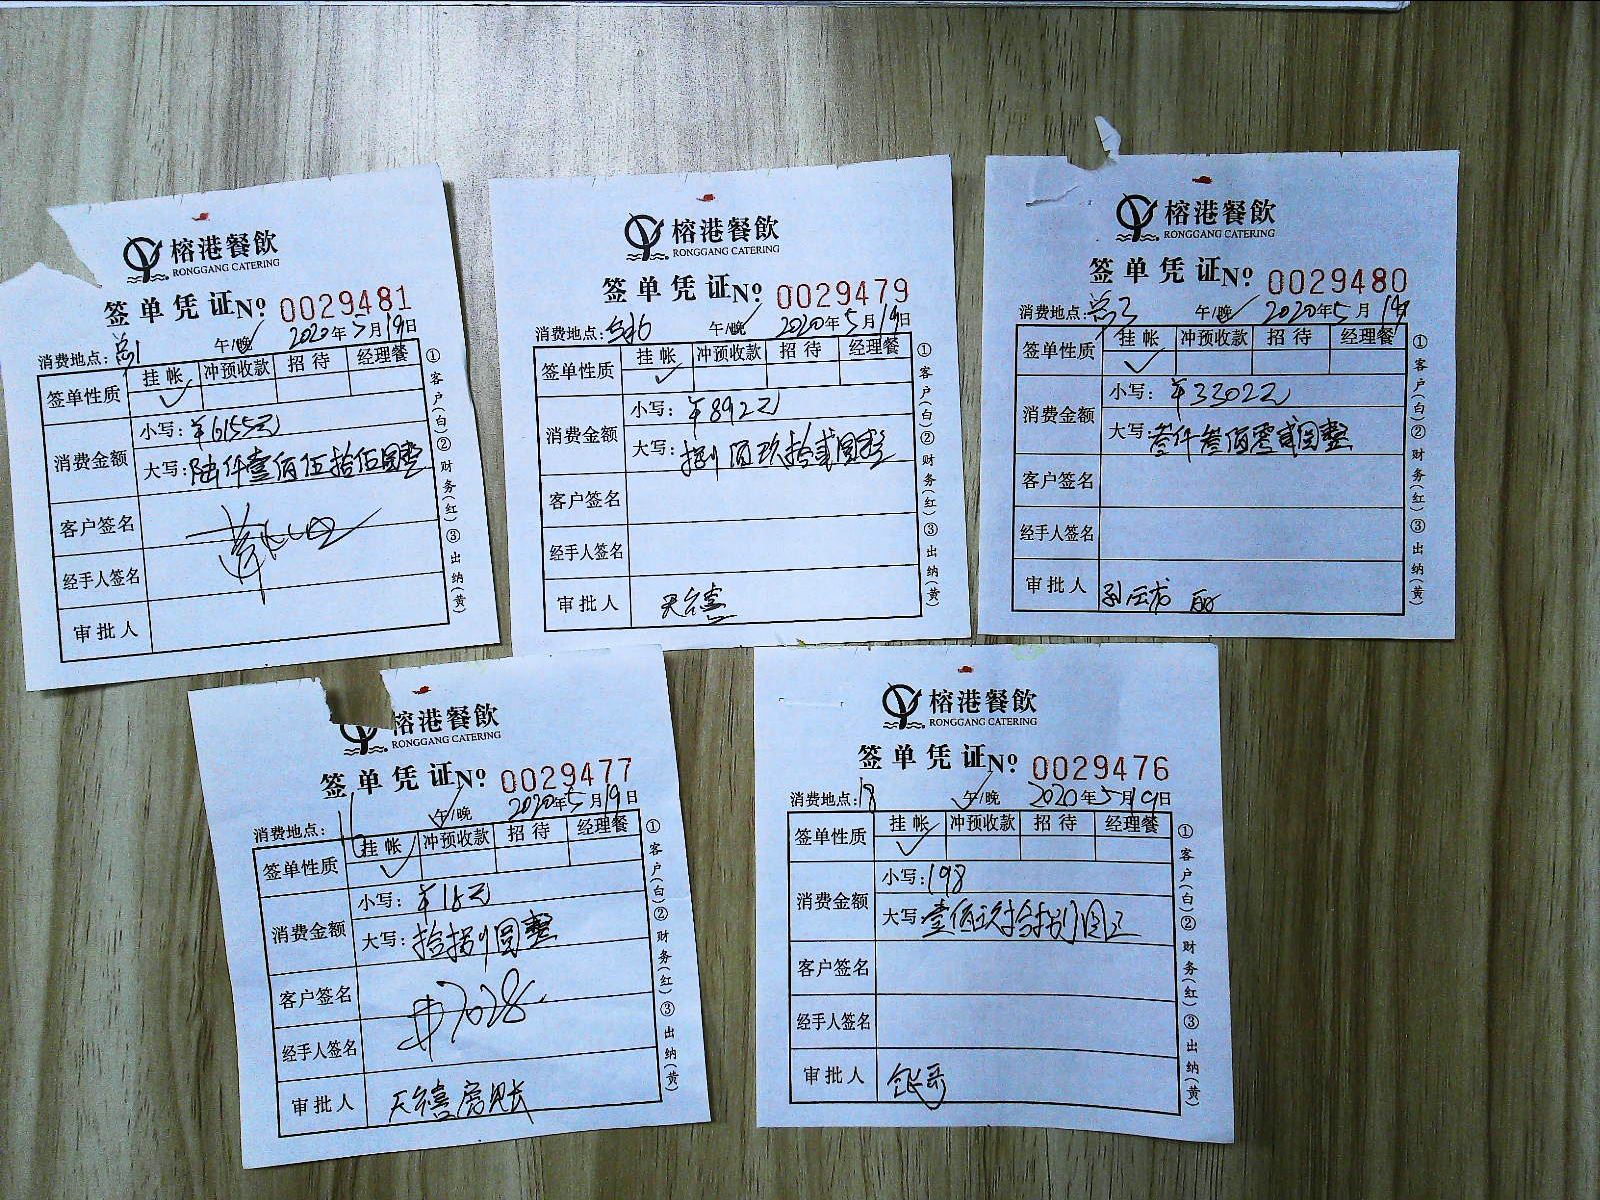 榕港餐飲
RONGGANG CATERING
签单凭证 No 0029481
消费地点: 总1 午/晚 2020年5月19日
签单性质 挂帐 冲预收款 招待 经理餐
消费金额 小写: ¥6155元
大写: 陆仟壹佰伍拾伍圆整
客户签名
经手人签名
审批人
①客户(白)②财务(红)③出纳(黄)
榕港餐飲
RONGGANG CATERING
签单凭证 No 0029479
消费地点: 午/晚 2020年5月19日
签单性质 挂帐 冲预收款 招待 经理餐
消费金额 小写: ¥892元
大写: 捌佰玖拾贰圆整
客户签名
经手人签名
审批人 天台喜
①客户(白)②财务(红)③出纳(黄)
榕港餐飲
RONGGANG CATERING
签单凭证 No 0029480
消费地点: 总3 午/晚 2020年5月19日
签单性质 挂帐 冲预收款 招待 经理餐
消费金额 小写: ¥3302元
大写: 叁仟叁佰零贰圆整
客户签名
经手人签名
审批人
①客户(白)②财务(红)③出纳(黄)
榕港餐飲
RONGGANG CATERING
签单凭证 No 0029477
消费地点: 午/晚 2020年5月19日
签单性质 挂帐 冲预收款 招待 经理餐
消费金额 小写: ¥18元
大写: 拾捌圆整
客户签名 7028
经手人签名
审批人 天台喜
①客户(白)②财务(红)③出纳(黄)
榕港餐飲
RONGGANG CATERING
签单凭证 No 0029476
消费地点: 18 午/晚 2020年5月19日
签单性质 挂帐 冲预收款 招待 经理餐
消费金额 小写: 198
大写: 壹佰玖拾捌圆正
客户签名
经手人签名
审批人
①客户(白)②财务(红)③出纳(黄)